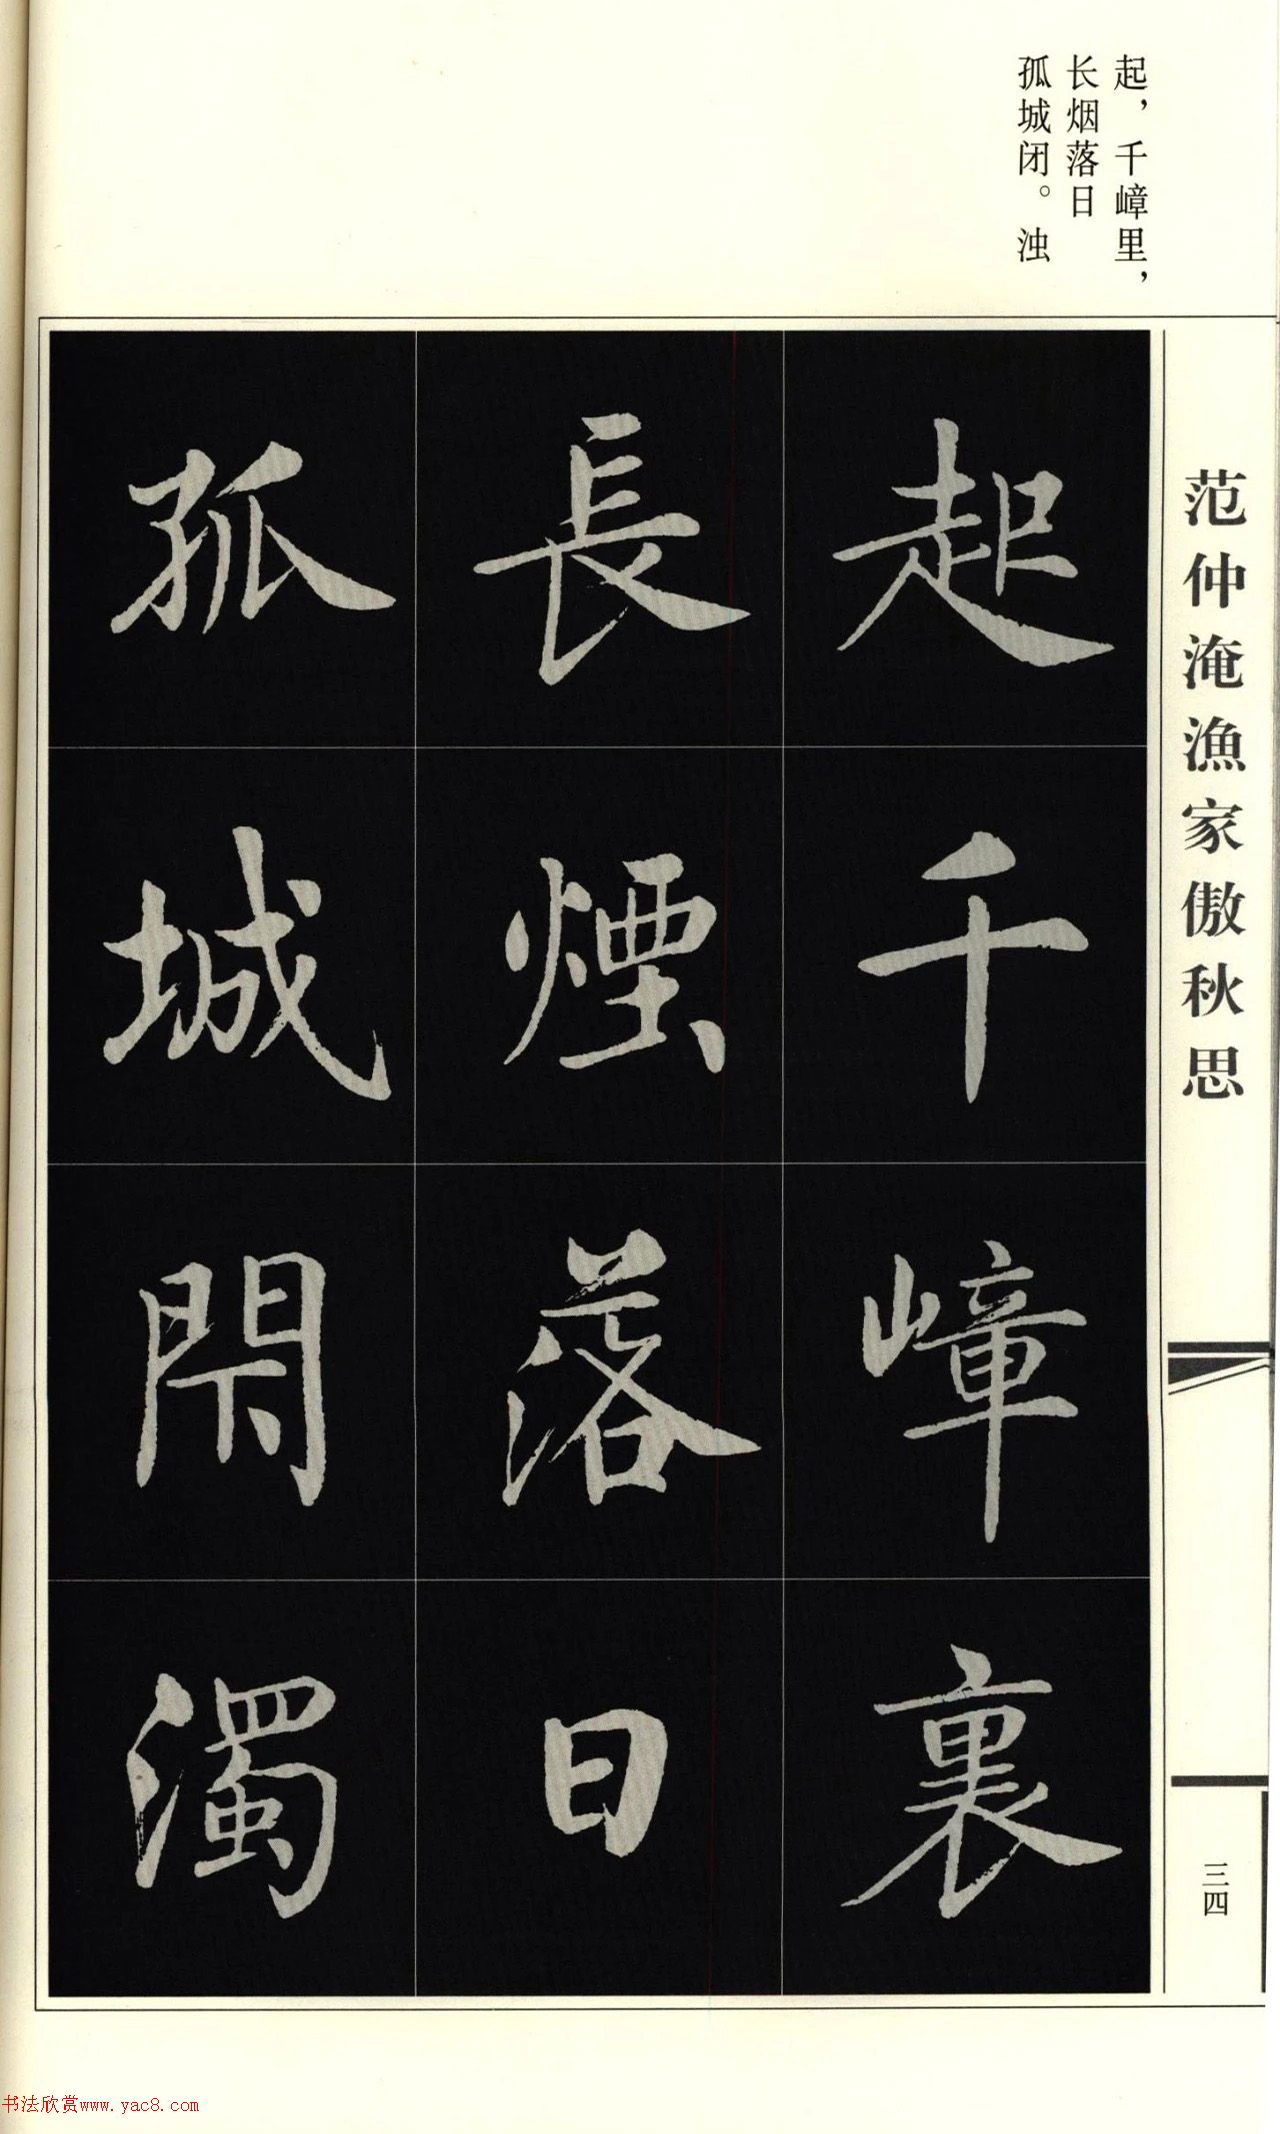 起，千嶂里，
长烟落日
孤城闭。浊
范仲淹渔家傲秋思
起千嶂裏
長煙落日
孤城閇濁
三四
书法欣赏www.yac8.com